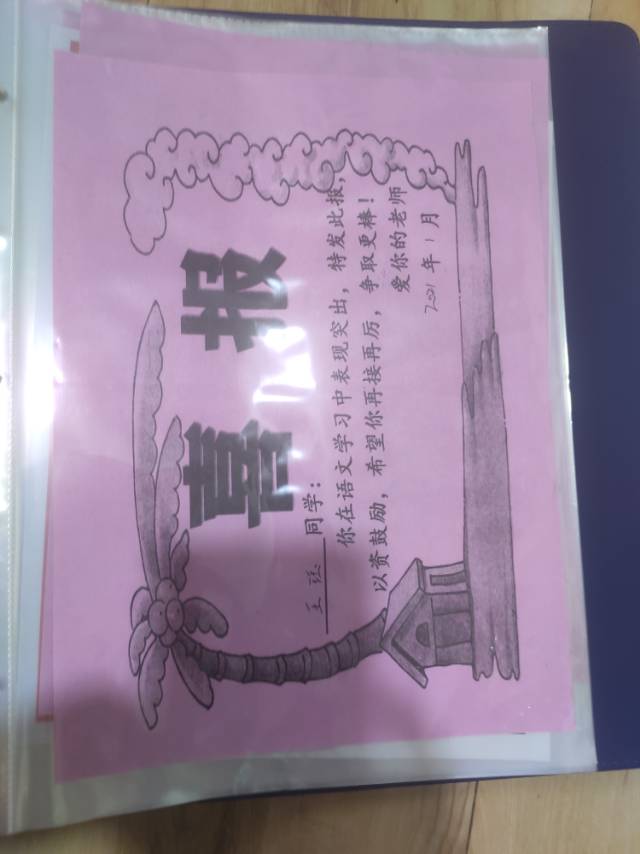 喜报
王 同学：
你在语文学习中表现突出，特发此报，
以资鼓励，希望你再接再厉，争取更棒！
爱你的老师
2021年1月